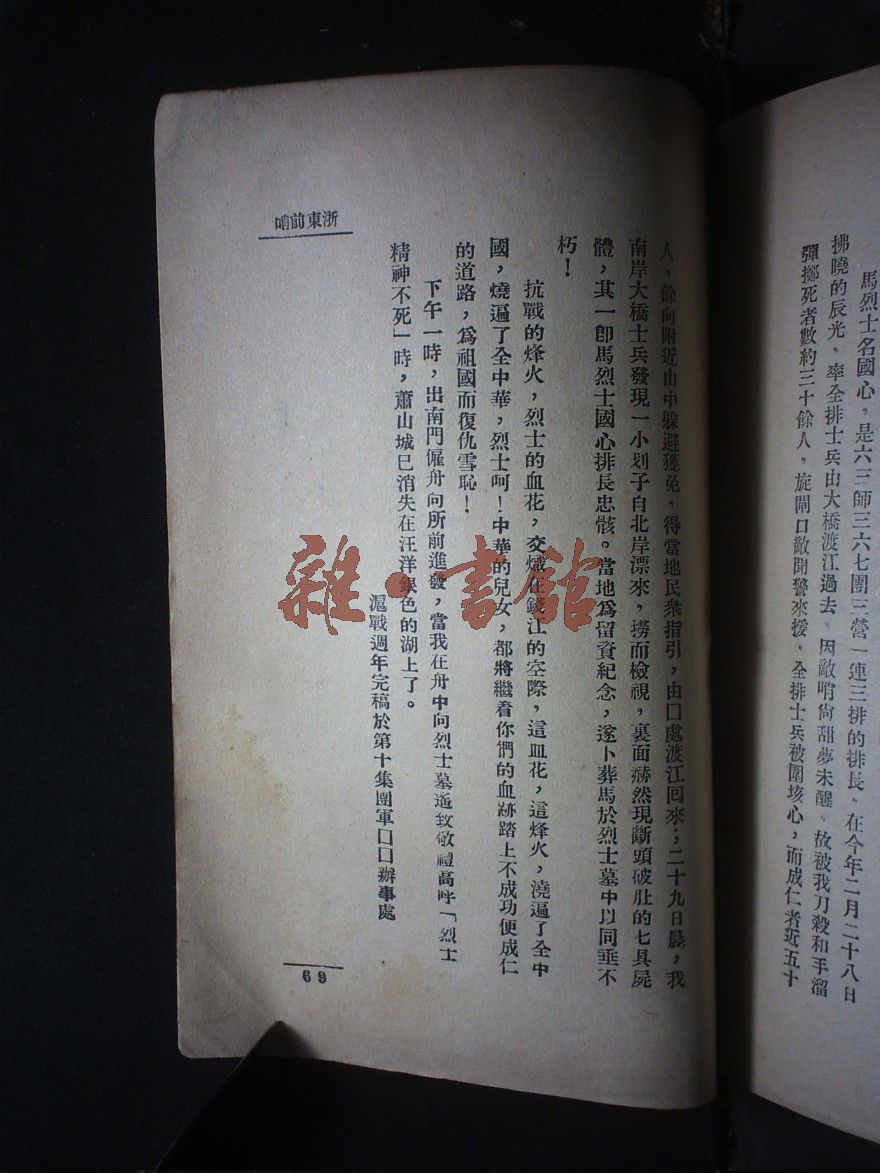 馬烈士名國心，是六三師三六七團三營一連三排的排長。在今年二月二十八日
拂曉的辰光，率全排士兵由大橋渡江過去。因敵哨尙甜夢未醒。故被我刀殺和手溜
彈擲死者數約三十餘人，旋閘口敵聞警來援、全排士兵被圍垓心，而成仁者近五十
人，餘向附近山中躱避獲免，得當地民衆指引，由口處渡江回來；二十九日晨，我
南岸大橋士兵發現一小划子自北岸漂來，撈而檢視，裏面赫然現斷頭破肚的七具屍
體，其一卽馬烈士國心排長忠骸。當地爲留資紀念，遂卜葬馬於烈士墓中以同垂不
朽！
抗戰的烽火，烈士的血花，交熾在錢江的空際，這血花，這烽火，澆遍了全中
國，燒遍了全中華，烈士呵！中華的兒女，都將繼着你們的血跡踏上不成功便成仁
的道路，爲祖國而復仇雪恥！
下午一時，出南門僱舟向所前進發，當我在舟中向烈士墓遙致敬禮高呼「烈士
精神不死」時，蕭山城已消失在汪洋銀色的湖上了。
滬戰週年完稿於第十集團軍口口辦事處
浙東前哨
69
雜·書館